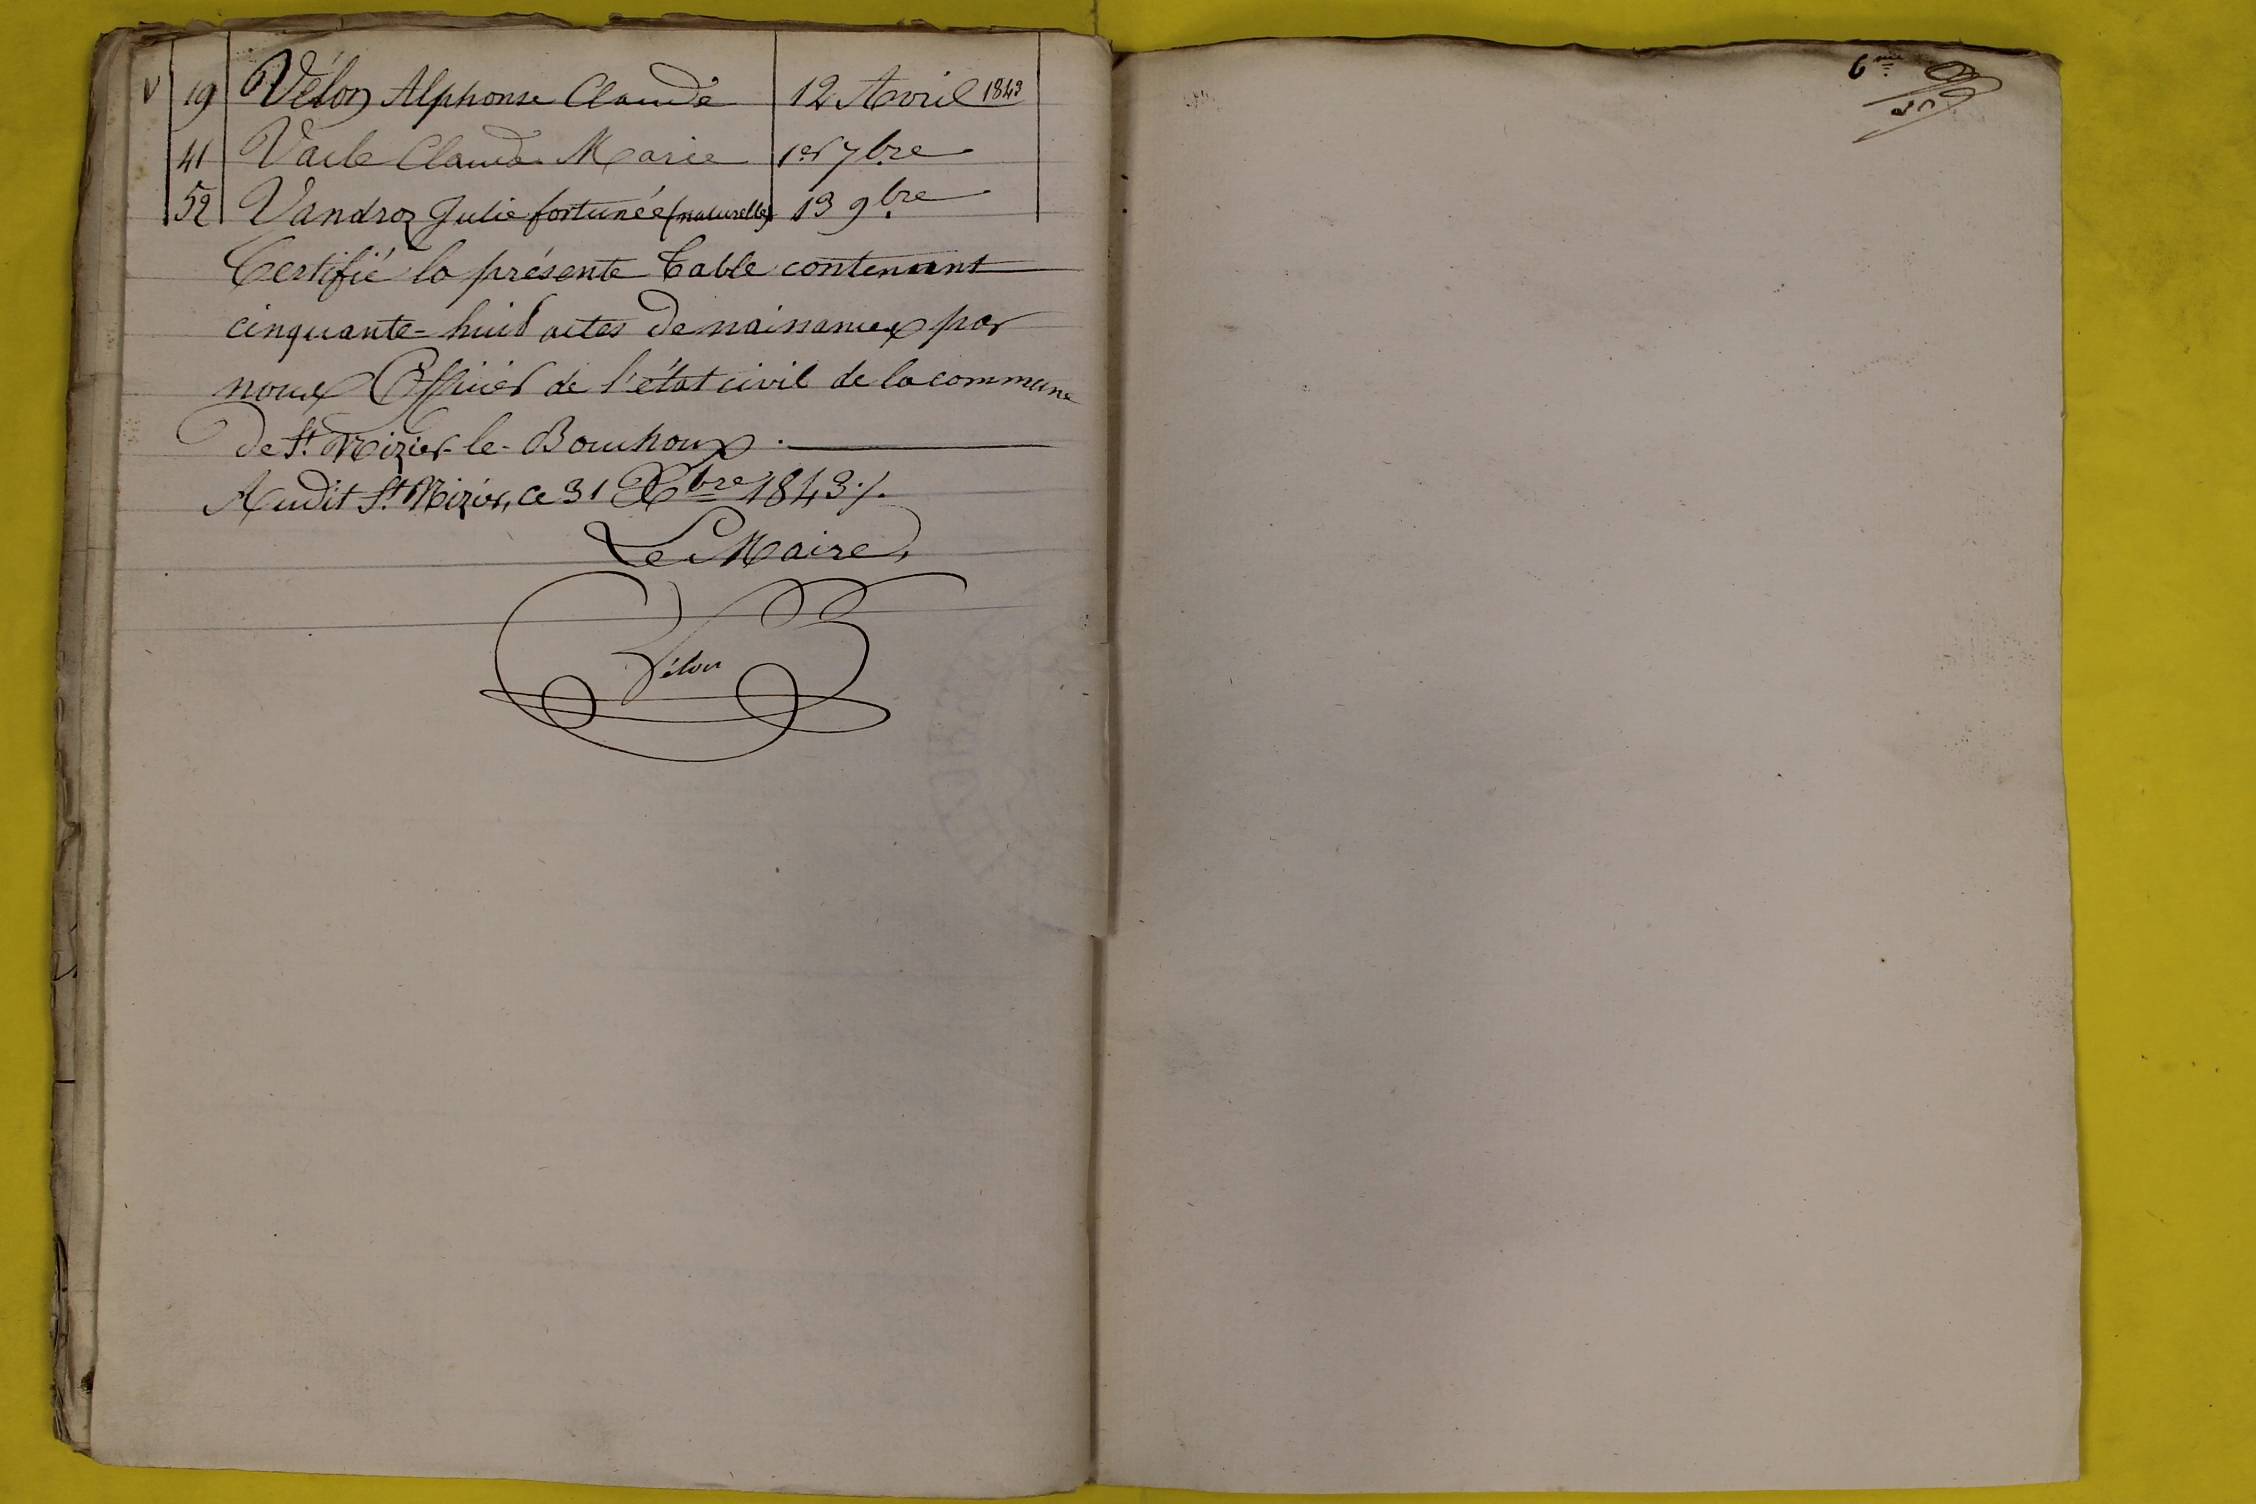 V 19 Vélon Alphonse Claude 12 Avril 1843
41 Vacle Claude Marie 1er 7bre
52 Vandroz Julie fortunée (naturelle) 13 9bre
Certifié la présente Table contenant
cinquante-huit actes de naissances par
nous Officier de l'état civil de la commune
de St. Nizier-le-Bouchoux.
Audit St. Nizier, ce 31 Xbre 1843 ./.
Le Maire,
Vélon
6me